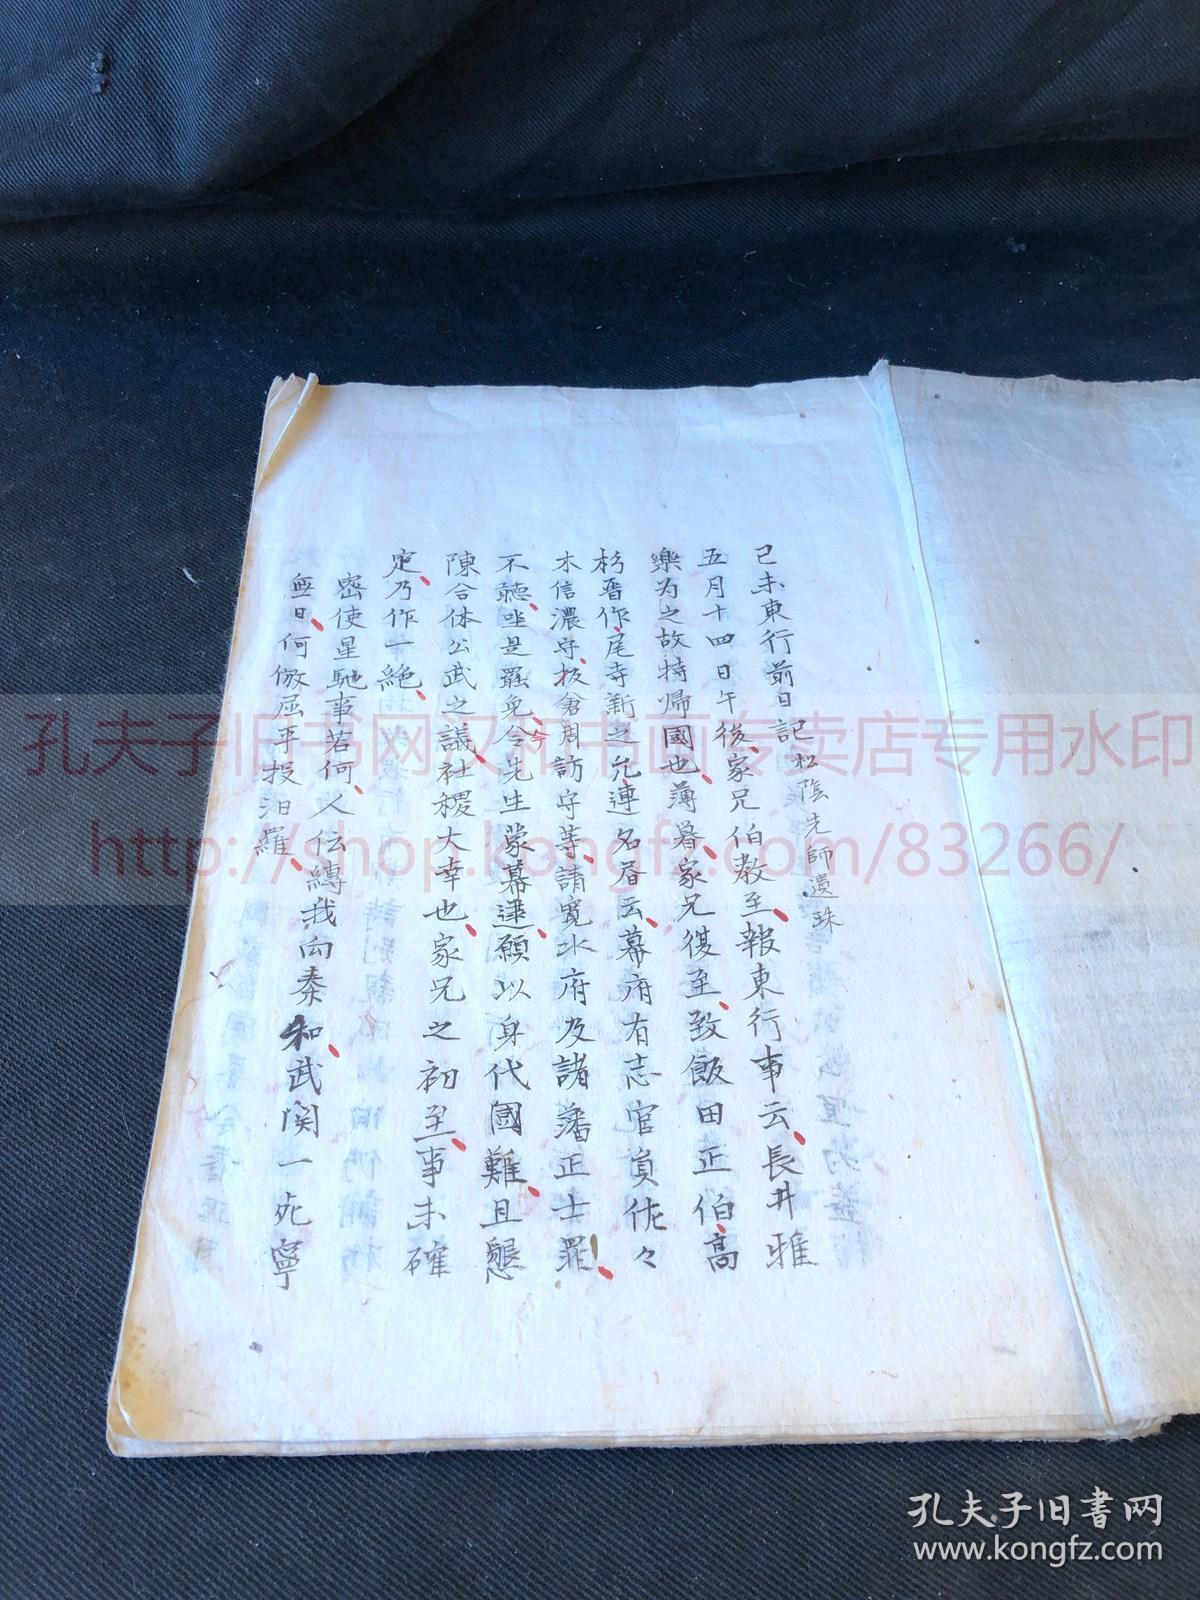 己未東行前日記 松陰先師遺珠
五月十四日午後、家兄伯教至、報東行事云、長井雅
樂为之故特帰國也、薄暮、家兄復至、致飯田正伯、高
杉晋作、尾寺新之允連名書云、幕府有志官員佐々
木信濃守、板倉周防守等、請寛水府及諸藩正士罪、
不聽、坐是罷免、今先生蒙幕逮、願以身代國難、且懇
陳合体公武之議、社稷大幸也、家兄之初至、事未確
定、乃作一絶、
密使星馳事若何、人伝縛我向秦和、武関一死寧
無日、何倣屈平投汨羅、
今
孔夫子旧书网汉和书画专卖店专用水印
http://shop.kongfz.com/83266/
孔夫子旧书网
www.kongfz.com